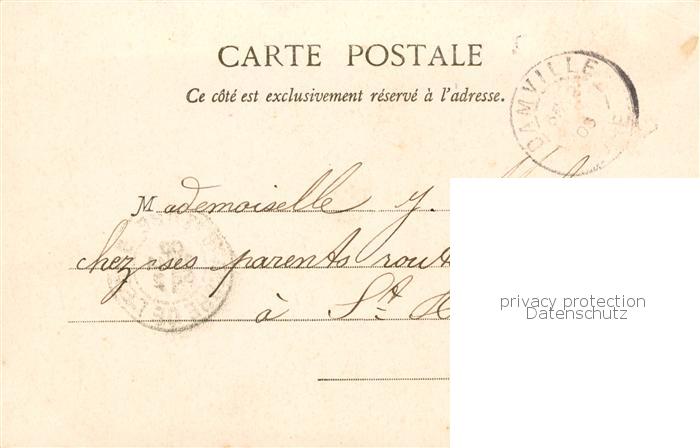 CARTE POSTALE
Ce côté est exclusivement réservé à l'adresse.
DAMVILLE
Mademoiselle Y.
chez ses parents rout
à St H
privacy protection
Datenschutz